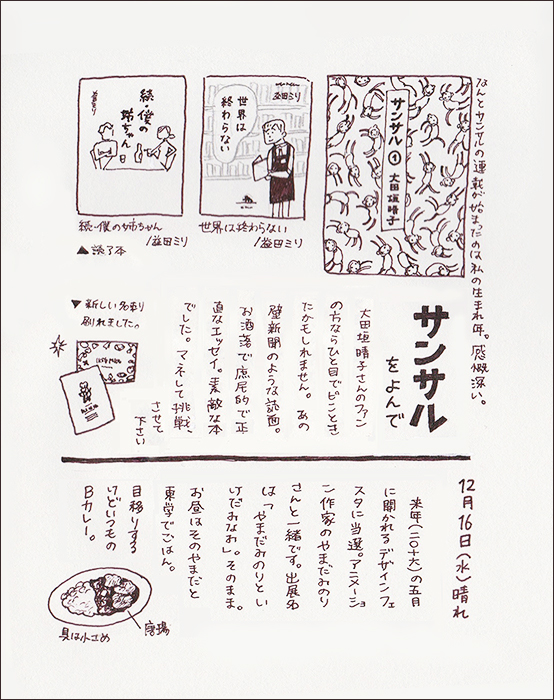 なんとサンサルの連載が始まったのは私の生まれ年。感慨深い。
サンサル①
大田垣晴子
益田ミリ
世界は
終わらない
世界は終わらない
/益田ミリ
続・僕の
姉ちゃん
益田ミリ
続・僕の姉ちゃん
/益田ミリ
▲読了本
サンサル
をよんで
大田垣晴子さんのファン
の方ならひと目でピンとき
たかもしれません。あの
壁新聞のような誌面。
お洒落で庶民的で正
直なエッセイ。素敵な本
でした。マネして挑戦、
させて
下さい
▼新しい名刺
刷れました。
12月16日(水)晴れ
来年(二〇十六)の五月
に開かれるデザインフェ
スタに当選。アニメーショ
ン作家のやまだみのり
さんと一緒です。出展名
は「やまだみのりとい
けだみなわ」。そのまま。
お昼はそのやまだと
東学でごはん。
目移りする
けどいつもの
Bカレー。
唐揚
具は小さめ